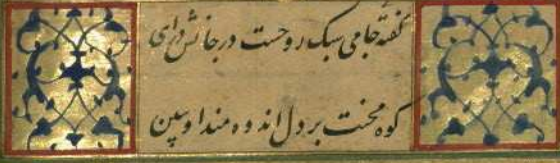 گفته جامی سبک روحست در جانش درای
کوه محنت بر دل اندوه مندا وسپن